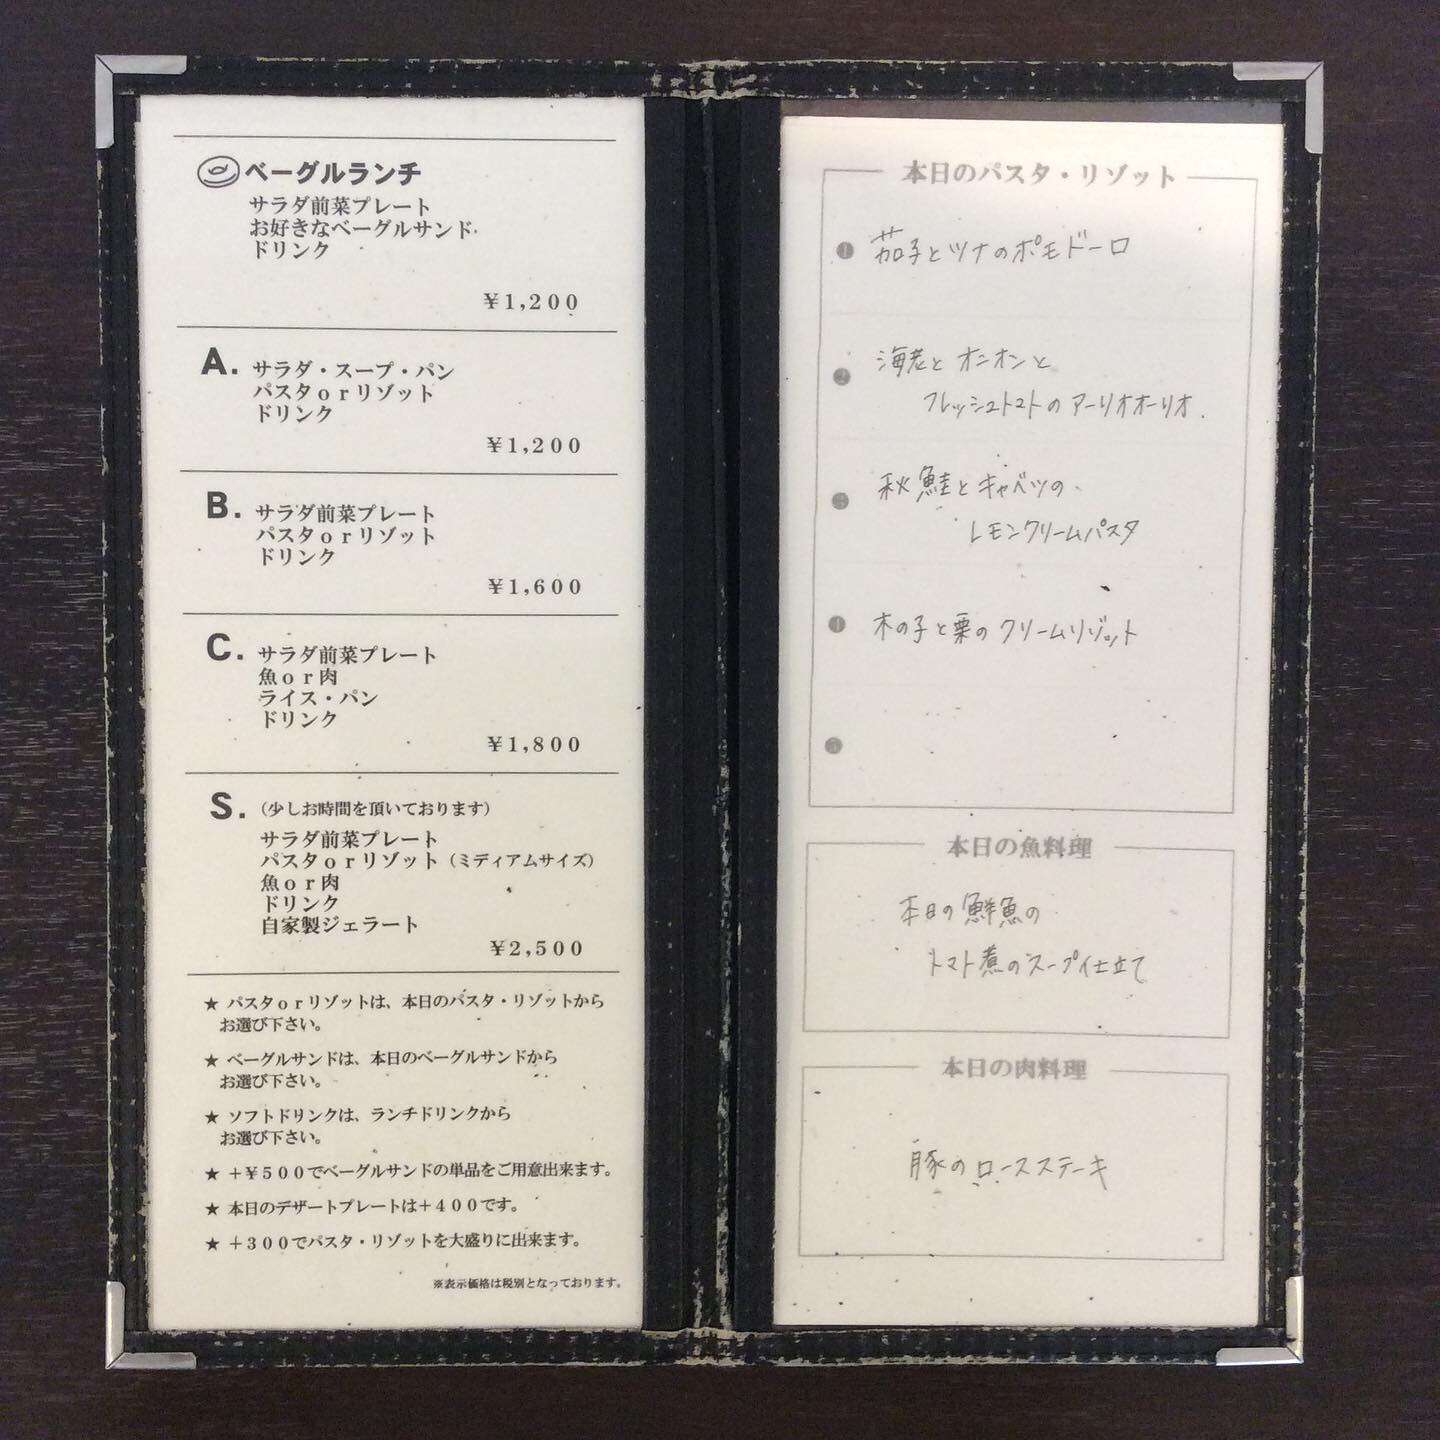 ベーグルランチ
サラダ前菜プレート
お好きなベーグルサンド
ドリンク
¥1,200
A.
サラダ・スープ・パン
パスタorリゾット
ドリンク
¥1,200
B.
サラダ前菜プレート
パスタorリゾット
ドリンク
¥1,600
C.
サラダ前菜プレート
魚or肉
ライス・パン
ドリンク
¥1,800
S.(少しお時間を頂いております)
サラダ前菜プレート
パスタorリゾット(ミディアムサイズ)
魚or肉
ドリンク
自家製ジェラート
¥2,500
★ パスタorリゾットは、本日のパスタ・リゾットから
お選び下さい。
★ ベーグルサンドは、本日のベーグルサンドから
お選び下さい。
★ ソフトドリンクは、ランチドリンクから
お選び下さい。
★ +¥500でベーグルサンドの単品をご用意出来ます。
★ 本日のデザートプレートは+400です。
★ +300でパスタ・リゾットを大盛りに出来ます。
※表示価格は税別となっております。
本日のパスタ・リゾット
1 茄子とツナのポモドーロ
2 海老とオニオンと
フレッシュトマトのアーリオオーリオ.
3 秋鮭とキャベツの
レモンクリームパスタ
4 木の子と栗のクリームリゾット
5
本日の魚料理
本日の鮮魚の
トマト煮のスープ仕立て
本日の肉料理
豚のロースステーキ